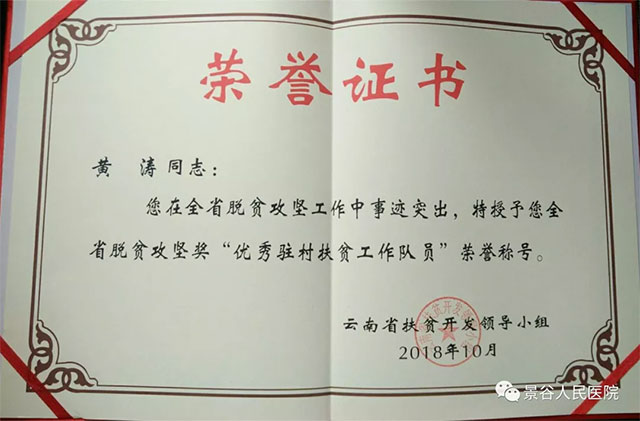 荣誉证书
黄 涛同志：
您在全省脱贫攻坚工作中事迹突出，特授予您全
省脱贫攻坚奖“优秀驻村扶贫工作队员”荣誉称号。
云南省扶贫开发领导小组
2018年10月
景谷人民医院